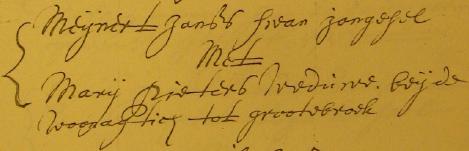 Meijnert Jansz Swan jongesel
Met
Marij Pieters weduwe. beijde
woonagtig tot grootebroek